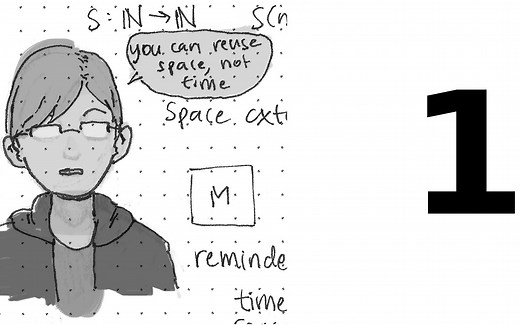 S: ℕ → ℕ S(n
you can reuse
space, not
time
Space
M
reminde
time